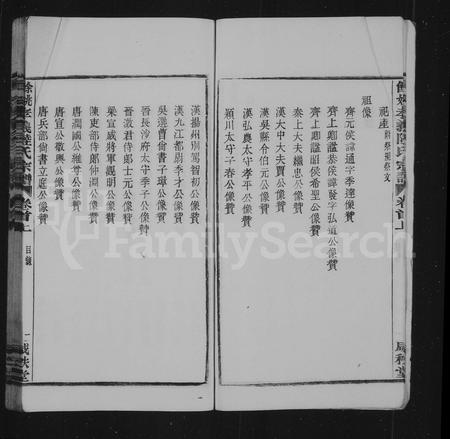 餘姚孝義陸氏宗譜 卷首上
咸秩堂
祠產 附祭器祭文
祖像
齊元侯諱通字季達像贊
齊上卿謚恭侯諱發字弘道公像贊
齊上卿謚昭侯希聖公像贊
秦上大夫繼忠公像贊
漢大中大夫賈公像贊
漢吳縣令伯元公像贊
漢弘農太守孝平公像贊
潁川太守子春公像贊
漢揚州別駕智初公像贊
漢九江都尉季才公像贊
吳選曹尚書子璋公像贊
晉長沙府太守季子公像贊
晉散君侍郎士元公像贊
梁宣威將軍觀明公像贊
陳吏部侍郎仲淵公像贊
唐潤國公雅尊公像贊
唐宣公敬輿公像贊
唐兵部尚書立庭公像贊
餘姚孝義陸氏宗譜 卷首上
目錄
一
咸秩堂
FamilySearch